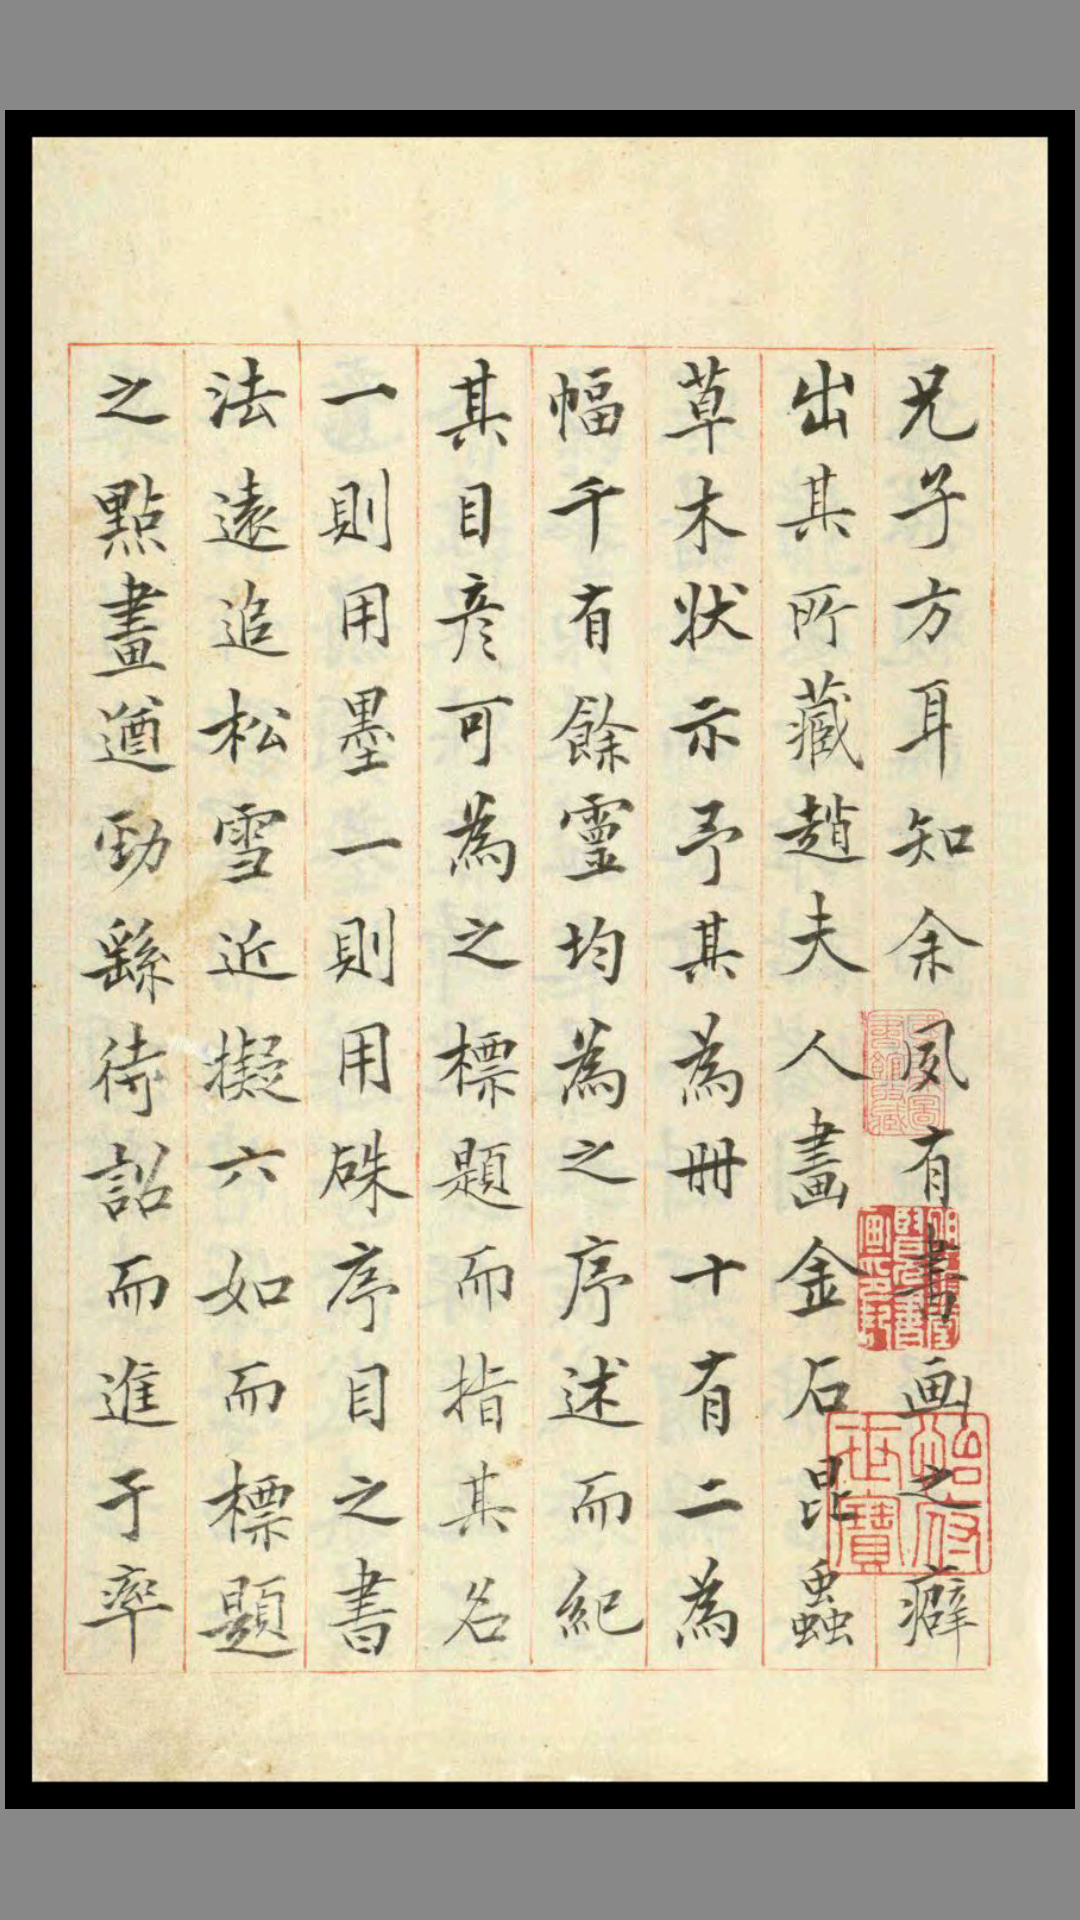 兄子方耳知余夙有書画之癖
出其所藏趙夫人畫金石昆蟲
草木狀示予其為冊十有二為
幅千有餘靈均為之序述而紀
其目彦可為之標題而指其名
一則用墨一則用硃序目之書
法遠追松雪近擬六如而標題
之點畫遒勁繇待詔而進于率